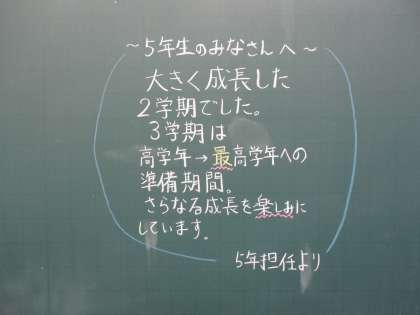 ～5年生のみなさんへ～
大きく成長した
2学期でした。
3学期は
高学年→最高学年への
準備期間。
さらなる成長を楽しみに
しています。
5年担任より